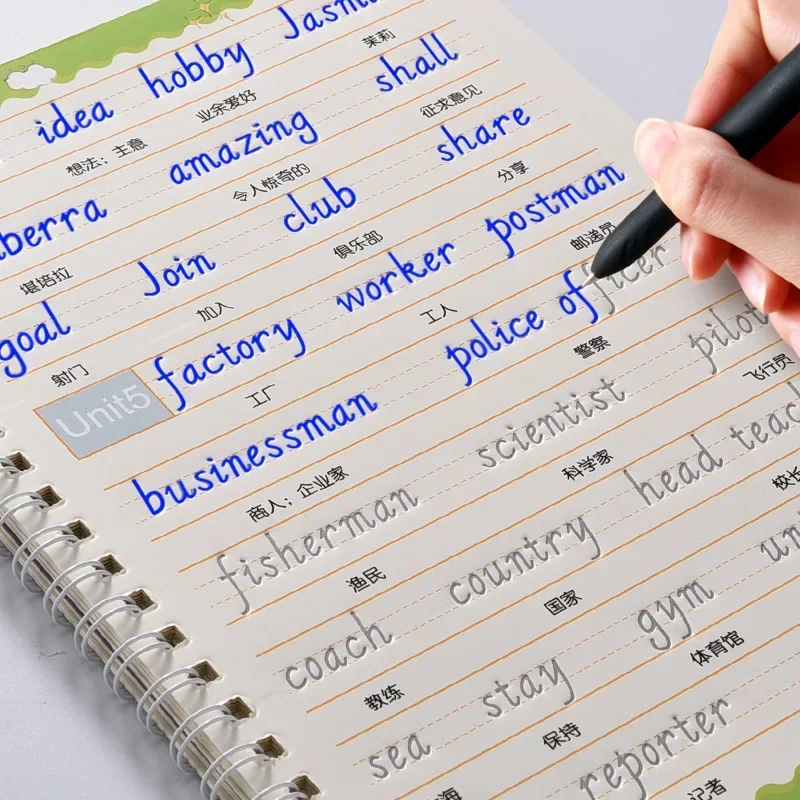 idea hobby Jasm
想法；主意 业余爱好 茉莉
berra amazing shall
堪培拉 令人惊奇的 征求意见
goal Join club share
射门 加入 俱乐部 分享
Unit5 factory worker postman
工厂 工人 邮递员
businessman police officer
商人；企业家 警察
fisherman scientist pilot
渔民 科学家 飞行员
coach country head teach
教练 国家 校长
sea stay gym un
海 保持 体育馆
reporter
记者